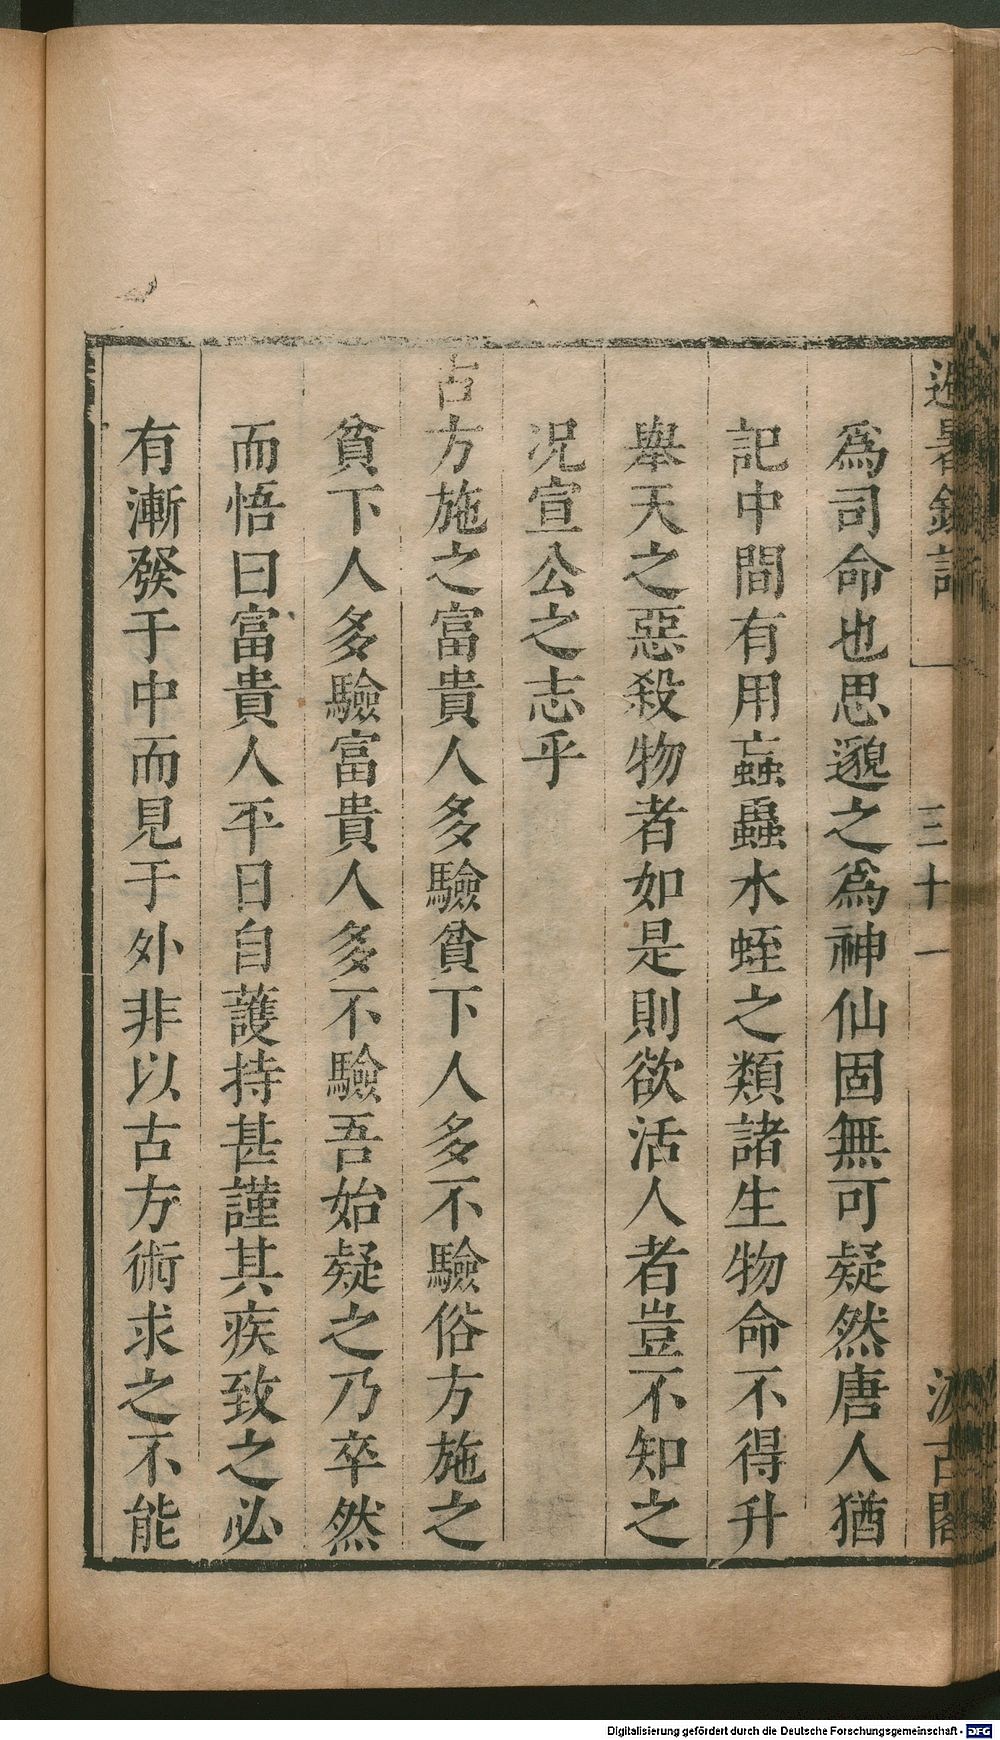 避暑錄話
三十一
汲古閣
爲司命也思邈之爲神仙固無可疑然唐人猶
記中間有用蝱蟲水蛭之類諸生物命不得升
舉天之惡殺物者如是則欲活人者豈不知之
况宣公之志乎
古方施之富貴人多驗貧下人多不驗俗方施之
貧下人多驗富貴人多不驗吾始疑之乃卒然
而悟曰富貴人平日自護持甚謹其疾致之必
有漸發于中而見于外非以古方術求之不能
Digitalisierung gefördert durch die Deutsche Forschungsgemeinschaft - DFG